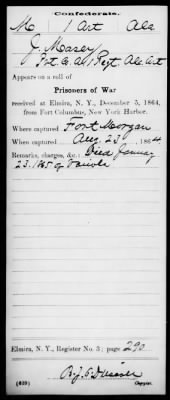 Confederate.
M 1 Art Ala
J. Maser
Pvt Co. A, 1 Regt. Ala. Art
Appears on a roll of
Prisoners of War
received at Elmira, N. Y., December 5, 1864,
from Fort Columbus, New York Harbor.
Where captured Fort Morgan
When captured Aug. 23, 1864
Remarks, charges, &c.: Died January
23. 1865 of Variola
Elmira, N. Y., Register No. 3; page 290
(639)
Copyist.